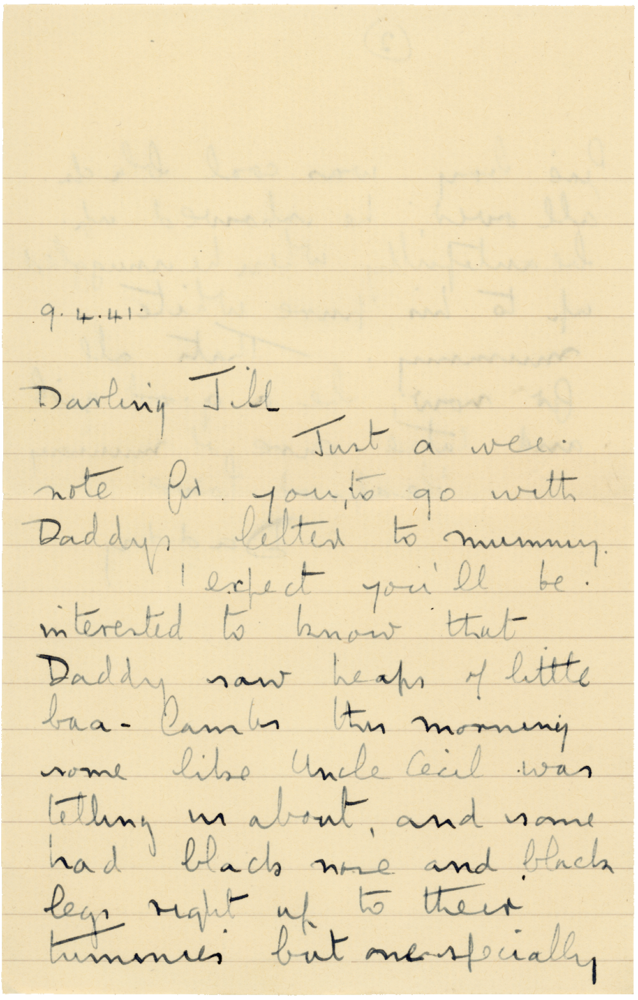 9.4.41.
Darling Jill
Just a wee
note for you, to go with
Daddys letter to mummy.
I expect you'll be
interested to know that
Daddy saw heaps of little
baa-lambs this morning
some like Uncle Cecil was
telling us about, and some
had black nose and black
legs right up to their
tummies but one specially